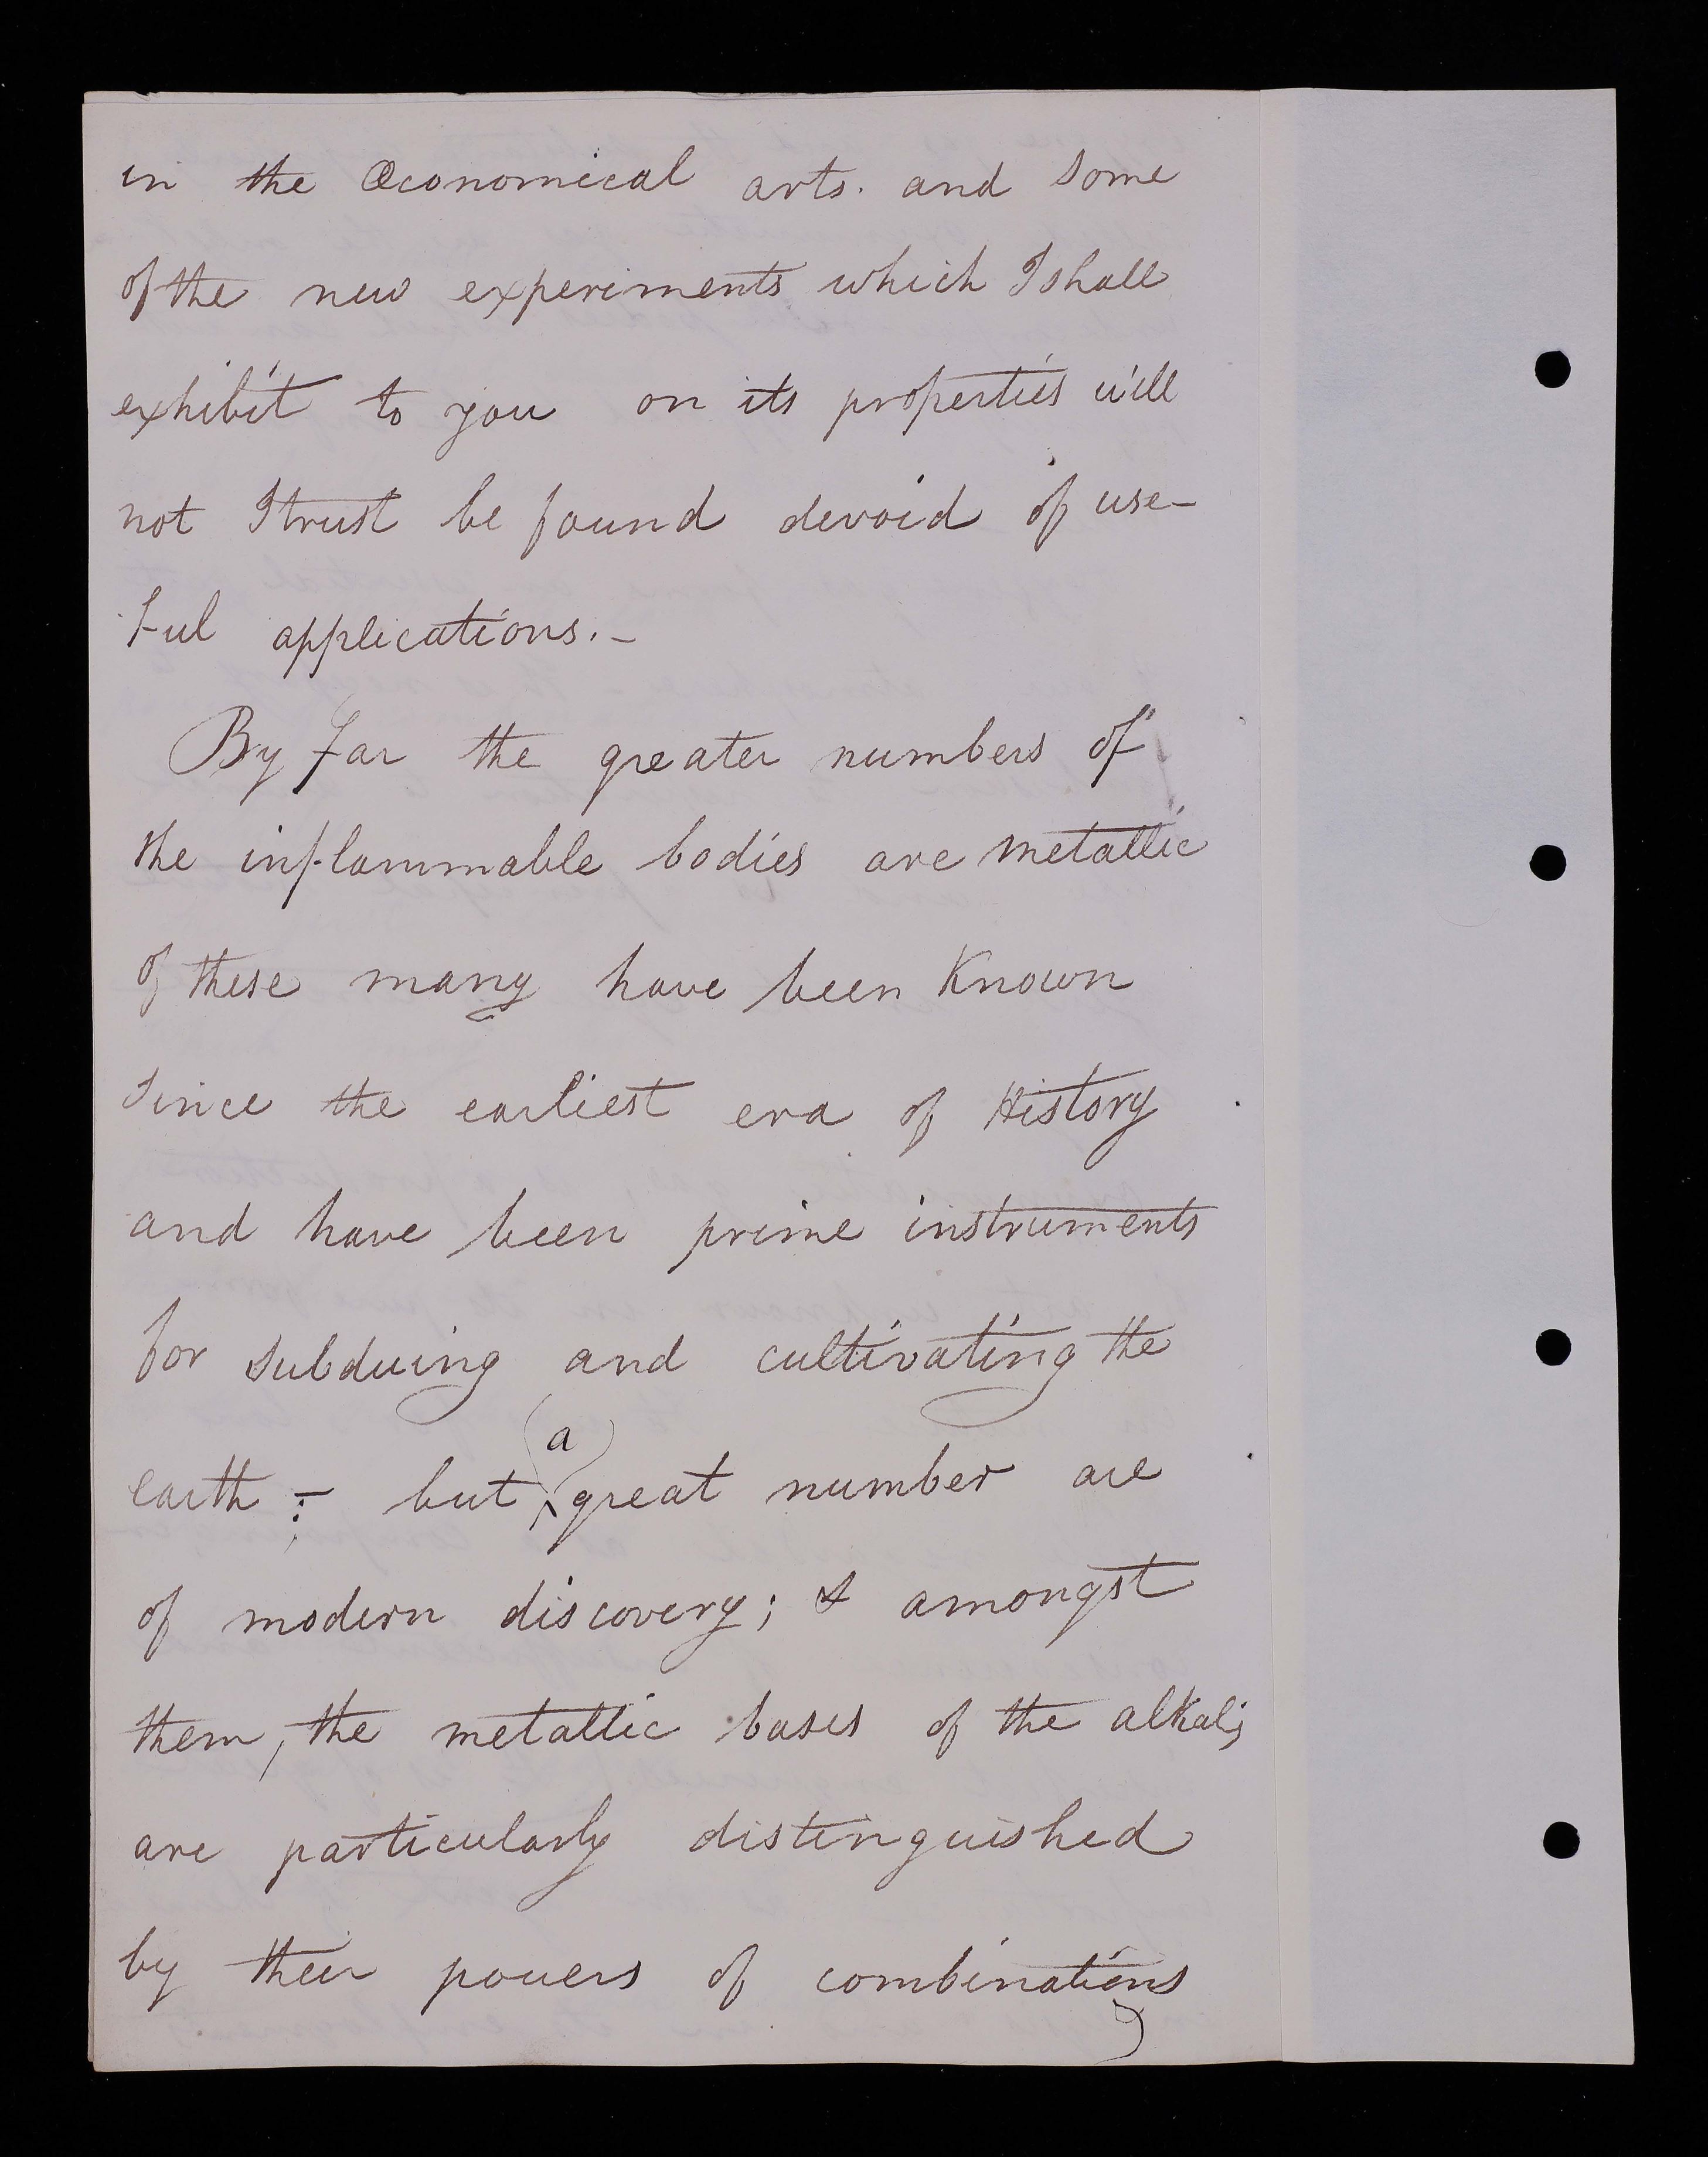 in the Œconomical arts. and some
of the new experiments which I shall
exhibit to you on its properties will
not I trust be found devoid of use-
ful applications. -
By far the greater numbers of
the inflammable bodies are metallic
of these many have been Known
since the earliest era of History
and have been prime instruments
for subduing and cultivating the
(a)
earth : - but ^ great number are
of modern discovery; & amongst
them, the metallic bases of the alkalis
are particularly distinguished
by their powers of combinations,